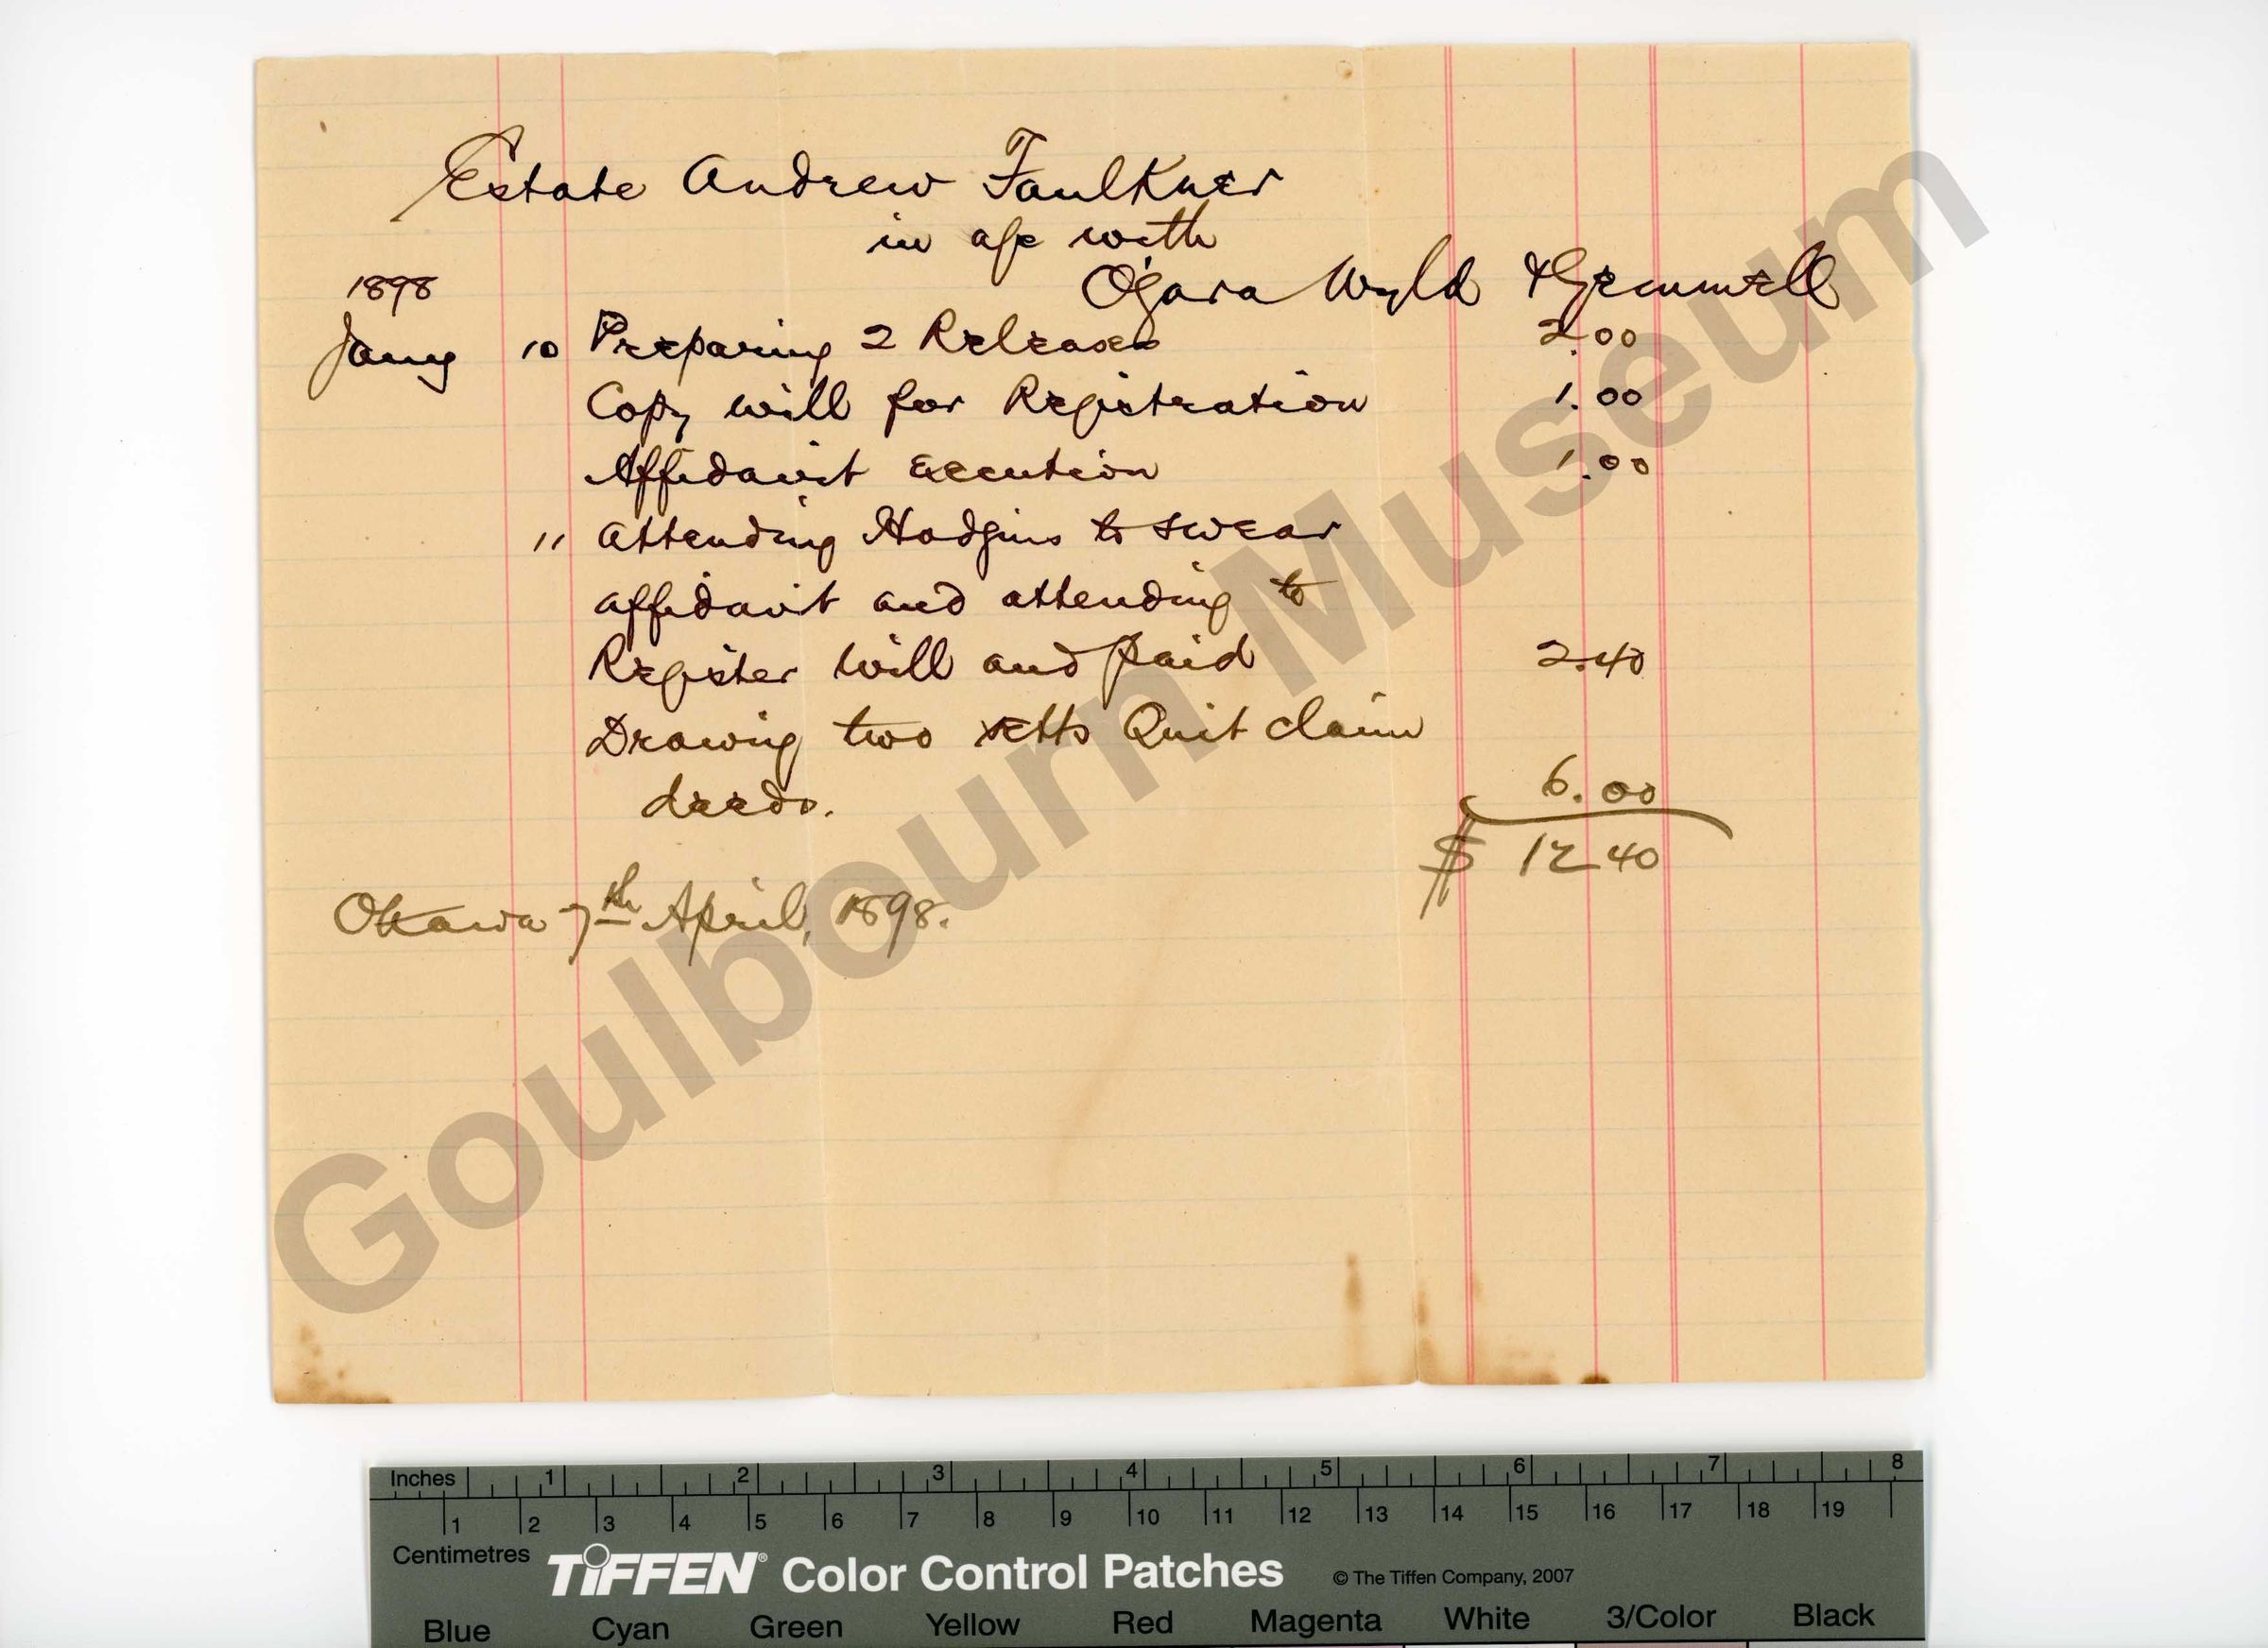 Estate Andrew Faulkner
in a/c with
1898 O'Gara Wyld & Gemmell
Jany 10 Preparing 2 Releases 2.00
Copy will for Registration 1.00
Affidavit Execution 1.00
" Attending Hodgins to swear
affidavit and attending to
Register will and paid 2.40
Drawing two setts Quit claim
deeds. 6.00
$ 12 40
Ottawa 7th April, 1898.
Goulbourn Museum
Inches 1 2 3 4 5 6 7 8
1 2 3 4 5 6 7 8 9 10 11 12 13 14 15 16 17 18 19
Centimetres
TIFFEN® Color Control Patches © The Tiffen Company, 2007
Blue Cyan Green Yellow Red Magenta White 3/Color Black